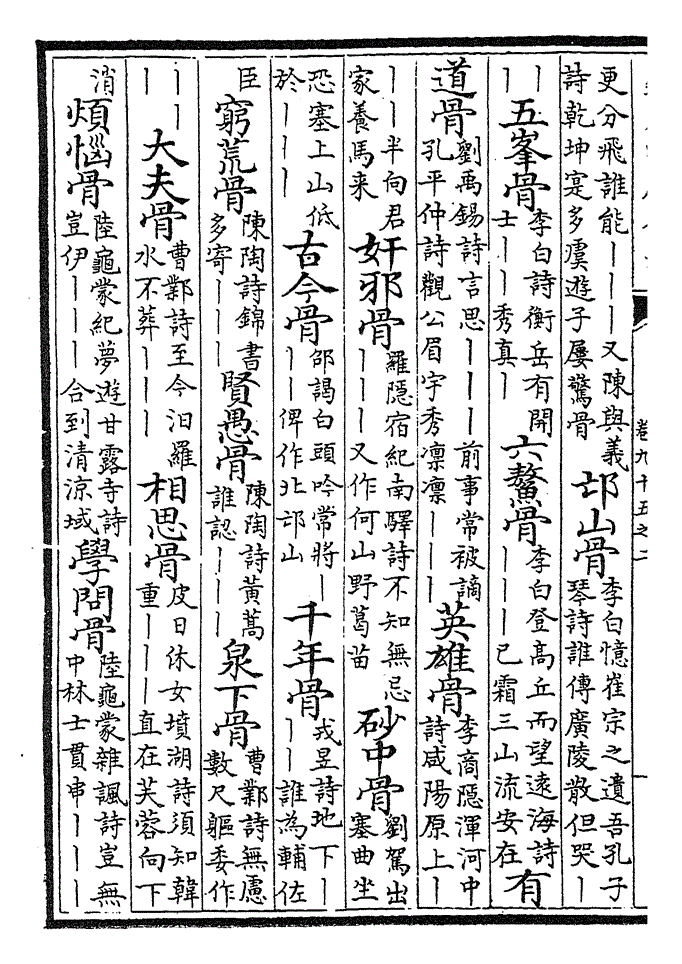 卷九十五之二
更分飛誰能｜｜｜又陳與義
詩乾坤寔多虞遊子屢驚骨
邙山骨
李白憶崔宗之遺吾孔子
琴詩誰傳廣陵散但哭｜
｜
｜
五峯骨
李白詩衡岳有開
士｜｜秀真｜
六鰲骨
李白登高丘而望遠海詩
｜｜｜已霜三山流安在
有
道骨
劉禹錫詩言思｜｜｜前事常被謫
孔平仲詩觀公眉宇秀凛凛｜｜｜
英雄骨
李商隱渾河中
詩咸陽原上｜
｜｜半向君
家養馬来
奸邪骨
羅隱宿紀南驛詩不知無忌
｜｜｜又作何山野葛苗
砂中骨
劉駕出
塞曲坐
恐塞上山低
於｜｜｜
古今骨
邵謁白頭吟常將｜
｜｜俾作北邙山
千年骨
戎昱詩地下｜
｜｜誰為輔佐
臣
窮荒骨
陳陶詩錦書
多寄｜｜｜
賢愚骨
陳陶詩黃蒿
誰認｜｜｜
泉下骨
曹鄴詩無慮
數尺軀委作
｜｜
｜
大夫骨
曹鄴詩至今汨羅
水不葬｜｜｜
相思骨
皮日休女墳湖詩須知韓
重｜｜｜直在芙蓉向下
消
煩惱骨
陸龜蒙紀夢遊甘露寺詩
豈伊｜｜｜合到清涼域
學問骨
陸龜蒙雜諷詩豈無
中林士貫串｜｜｜